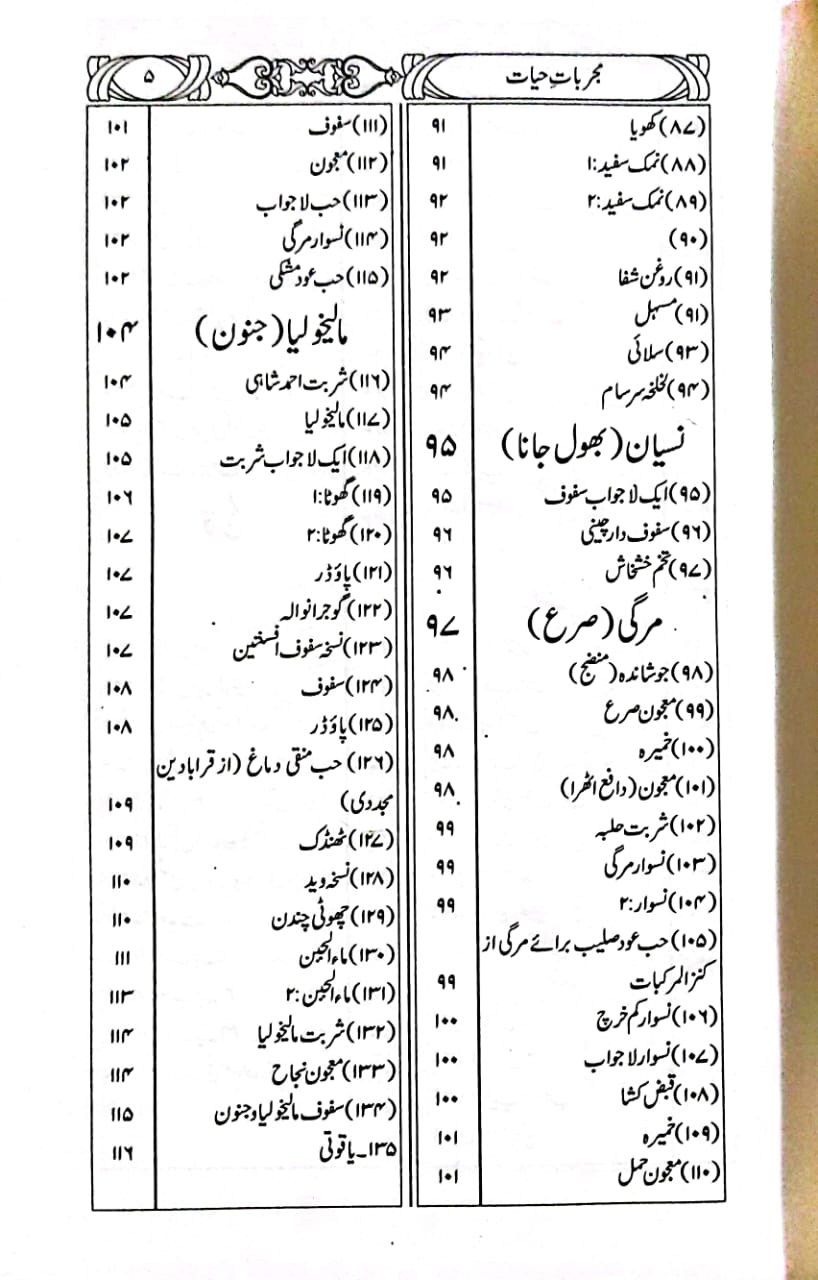 مجربات حیات
۵
(۸۷) کھویا ۹۱
(۸۸) نمک سفید:۱ ۹۱
(۸۹) نمک سفید:۲ ۹۲
(۹۰) ۹۲
(۹۱) روغن شفا ۹۲
(۹۱) مسہل ۹۳
(۹۳) سلائی ۹۴
(۹۴) لخلخہ سرسام ۹۴
نسیان (بھول جانا) ۹۵
(۹۵) ایک لاجواب سفوف ۹۵
(۹۶) سفوف دارچینی ۹۶
(۹۷) تخم خشخاش ۹۶
مرگی (صرع) ۹۷
(۹۸) جوشاندہ (منضج) ۹۸
(۹۹) معجون صرع ۹۸
(۱۰۰) خمیرہ ۹۸
(۱۰۱) معجون (دافع اٹھرا) ۹۸
(۱۰۲) شربت حلبہ ۹۹
(۱۰۳) نسوار مرگی ۹۹
(۱۰۴) نسوار:۲ ۹۹
(۱۰۵) حب عود صلیب برائے مرگی از
کنز المرکبات ۹۹
(۱۰۶) نسوار کم خرچ ۱۰۰
(۱۰۷) نسوار لاجواب ۱۰۰
(۱۰۸) قبض کشا ۱۰۰
(۱۰۹) خمیرہ ۱۰۱
(۱۱۰) معجون حمل ۱۰۱
(۱۱۱) سفوف ۱۰۱
(۱۱۲) معجون ۱۰۲
(۱۱۳) حب لاجواب ۱۰۲
(۱۱۴) نسوار مرگی ۱۰۲
(۱۱۵) حب عود مشکی ۱۰۲
مالیخولیا (جنون) ۱۰۴
(۱۱۶) شربت احمد شاہی ۱۰۴
(۱۱۷) مالیخولیا ۱۰۵
(۱۱۸) ایک لاجواب شربت ۱۰۵
(۱۱۹) گھوٹا:۱ ۱۰۶
(۱۲۰) گھوٹا:۲ ۱۰۷
(۱۲۱) پاؤڈر ۱۰۷
(۱۲۲) گوجرانوالہ ۱۰۷
(۱۲۳) نسخہ سفوف افسنتین ۱۰۷
(۱۲۴) سفوف ۱۰۸
(۱۲۵) پاؤڈر ۱۰۸
(۱۲۶) حب منقی دماغ (از قرابادین
مجددی) ۱۰۹
(۱۲۷) ٹھنڈک ۱۰۹
(۱۲۸) نسخہ وید ۱۱۰
(۱۲۹) چھوٹی چندن ۱۱۰
(۱۳۰) ماءالجبن ۱۱۱
(۱۳۱) ماءالجبن:۲ ۱۱۳
(۱۳۲) شربت مالیخولیا ۱۱۴
(۱۳۳) معجون نجاح ۱۱۴
(۱۳۴) سفوف مالیخولیا و جنون ۱۱۵
۱۳۵۔ یاقوتی ۱۱۶